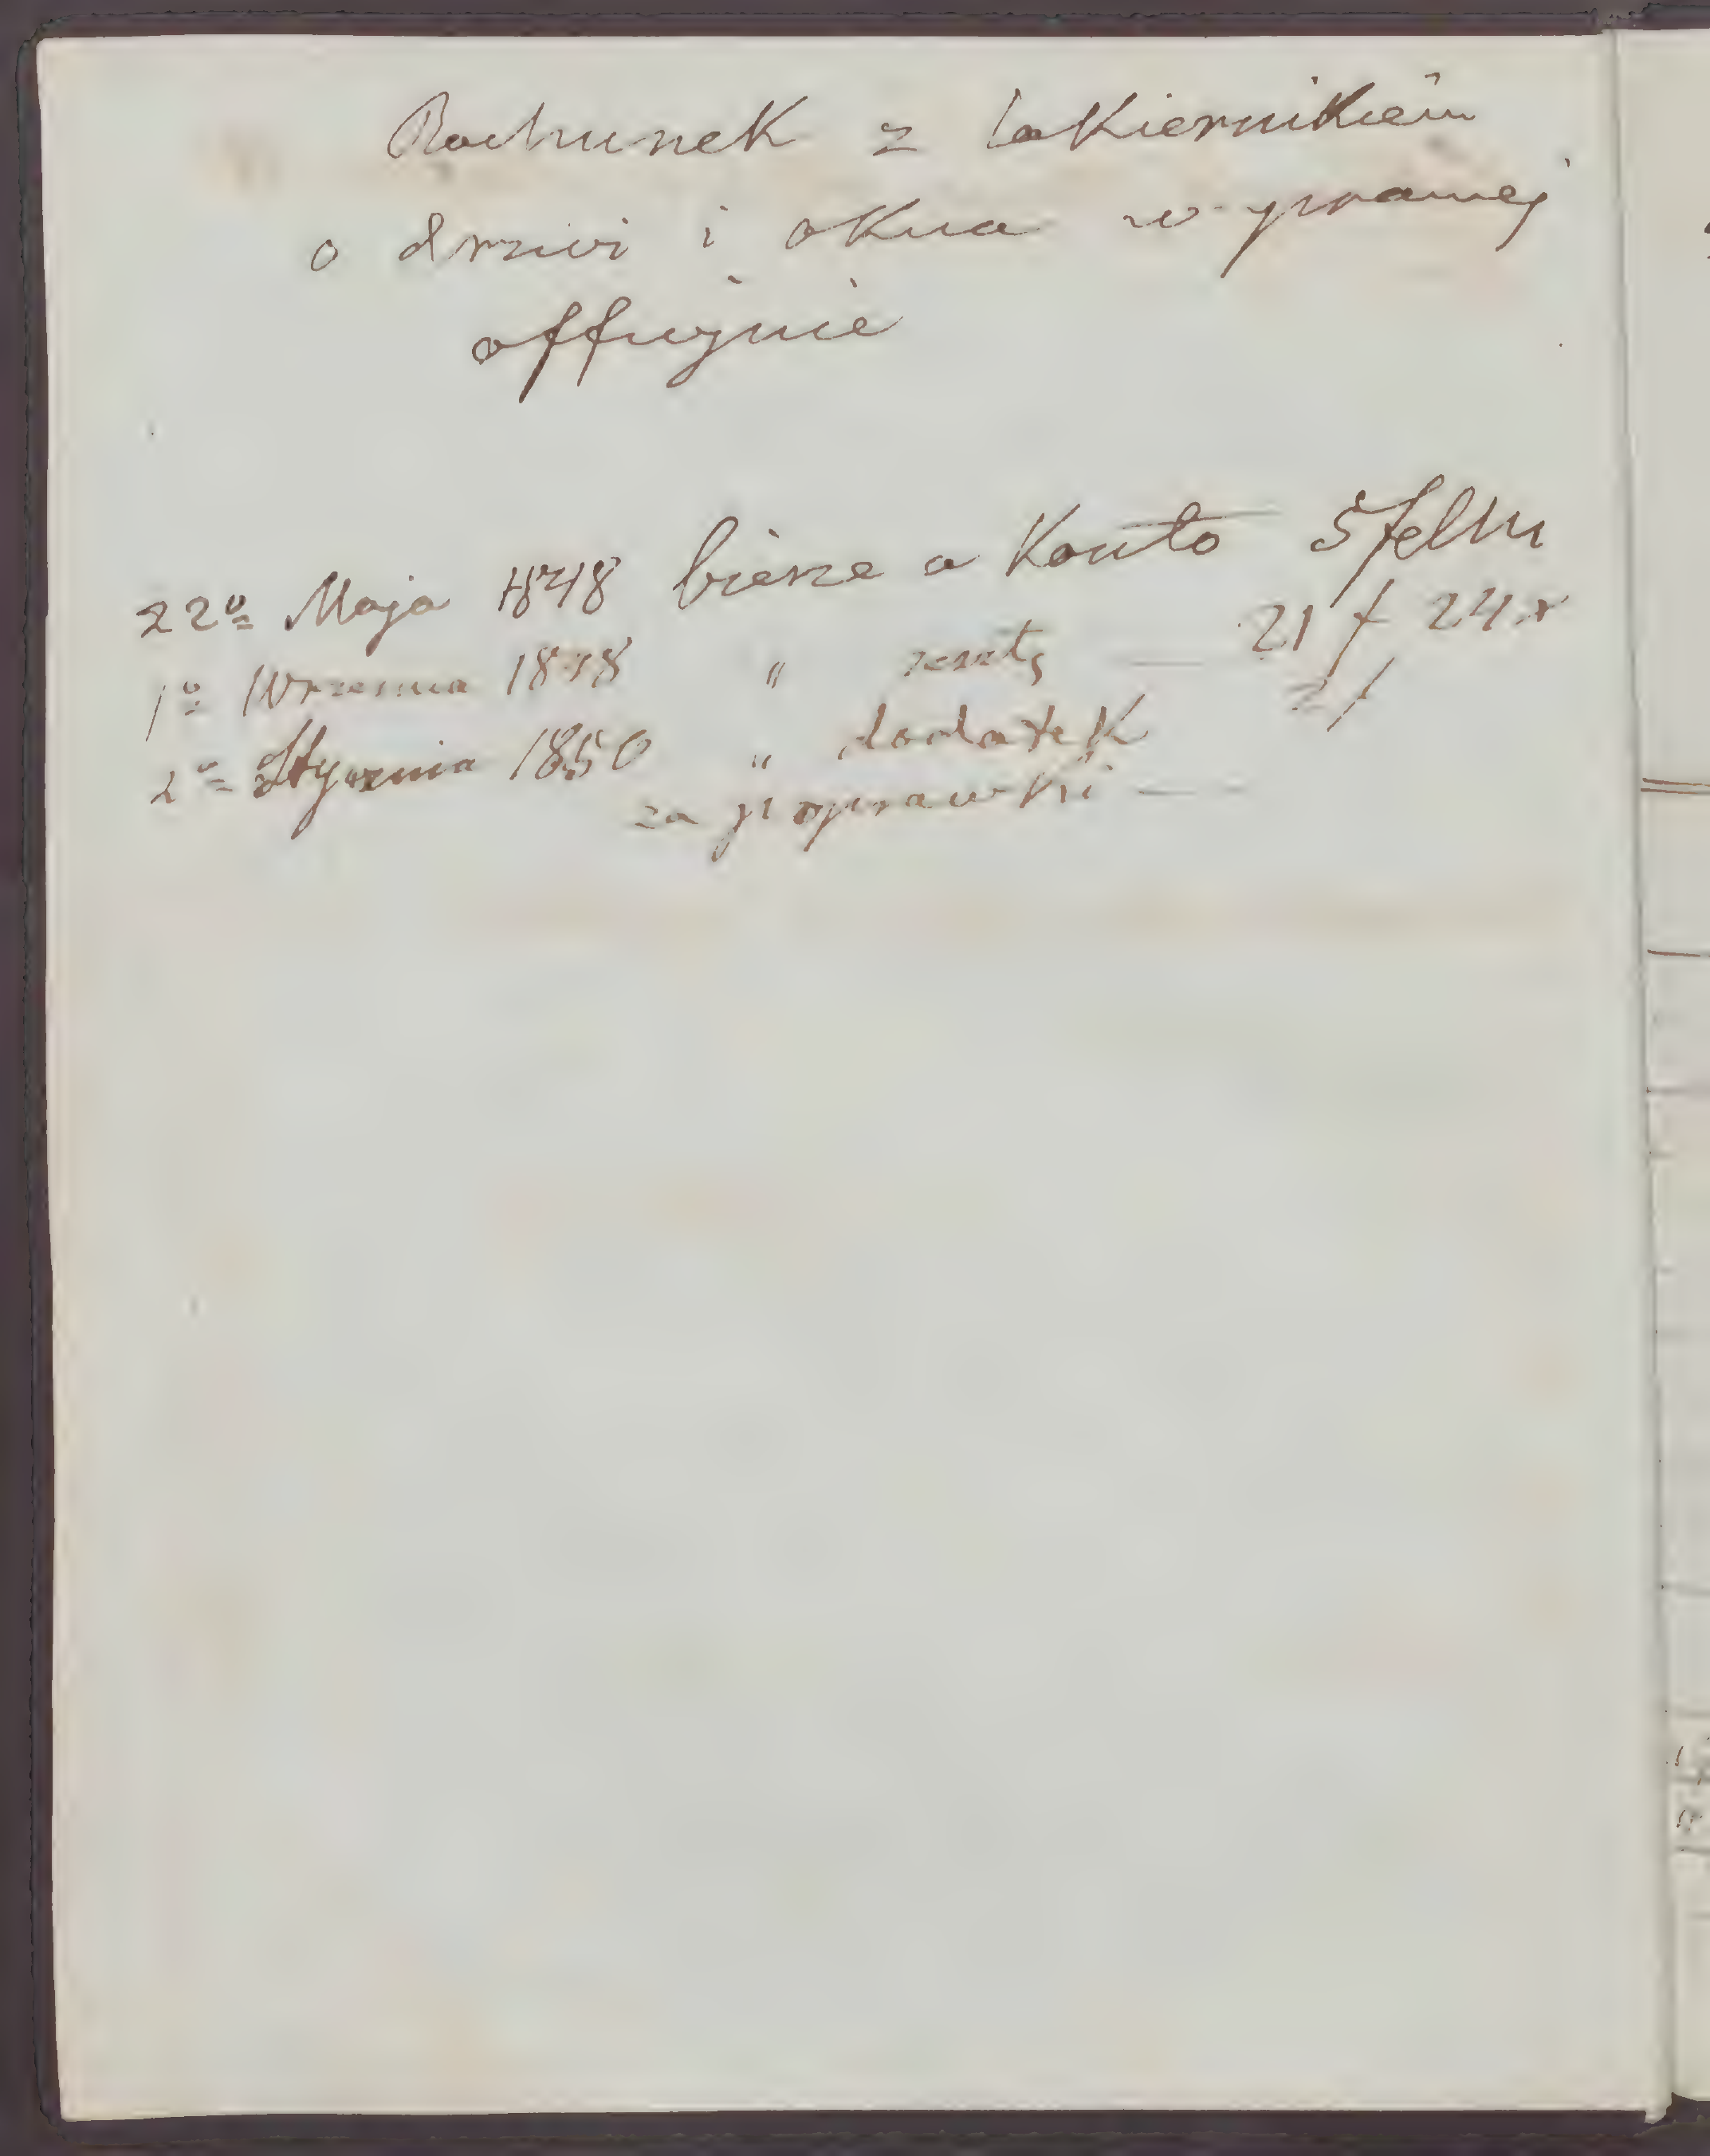 Rachunek z lakiernikiem
o drzwi i okna w prawej
officynie
22º Maja 1848 bierze a Konto 5 f
1º Września 1848 " resztę — 21 f 24 x
2º Stycznia 1850 " dodatek 2 f
za poprawki —